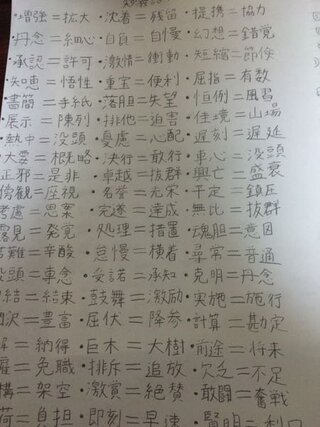 ・増強=拡大・沈着=残留・提携=協力
・丹念=細心・自負=自慢・幻想=錯覚
・承認=許可・激情=衝動・短縮=節倹
知恵=悟性・重宝=便利・屈指=有数
書簡=手紙・落胆=失望・恒例=風習
展示=陳列・排他=迫害・佳境=山場
熱中=没頭・憂慮=心配・遅刻=遅延
大要=・決行=敢行・専心=没頭
正邪=是非・卓越=抜群・興亡=盛衰
傍観=座視・名誉=光栄・平定=鎮圧
考慮=思案・完遂=達成・無比=抜群
露見=発覚・処理=措置・魂胆=意図
苦難=辛酸・怠慢=横着・尋常=普通
没頭=専念・受諾=承知・克明=丹念
結=結束・鼓舞=激励・実施=施行
沢=豊富・屈伏=降参・計算=勘定
解=納得・巨木=大樹・前途=将来
雇=免職・排斥=追放・欠乏=不足
構=架空・激賞=絶賛・敢闘=奮戦
荷=負担・即刻=早速・賢明=利口